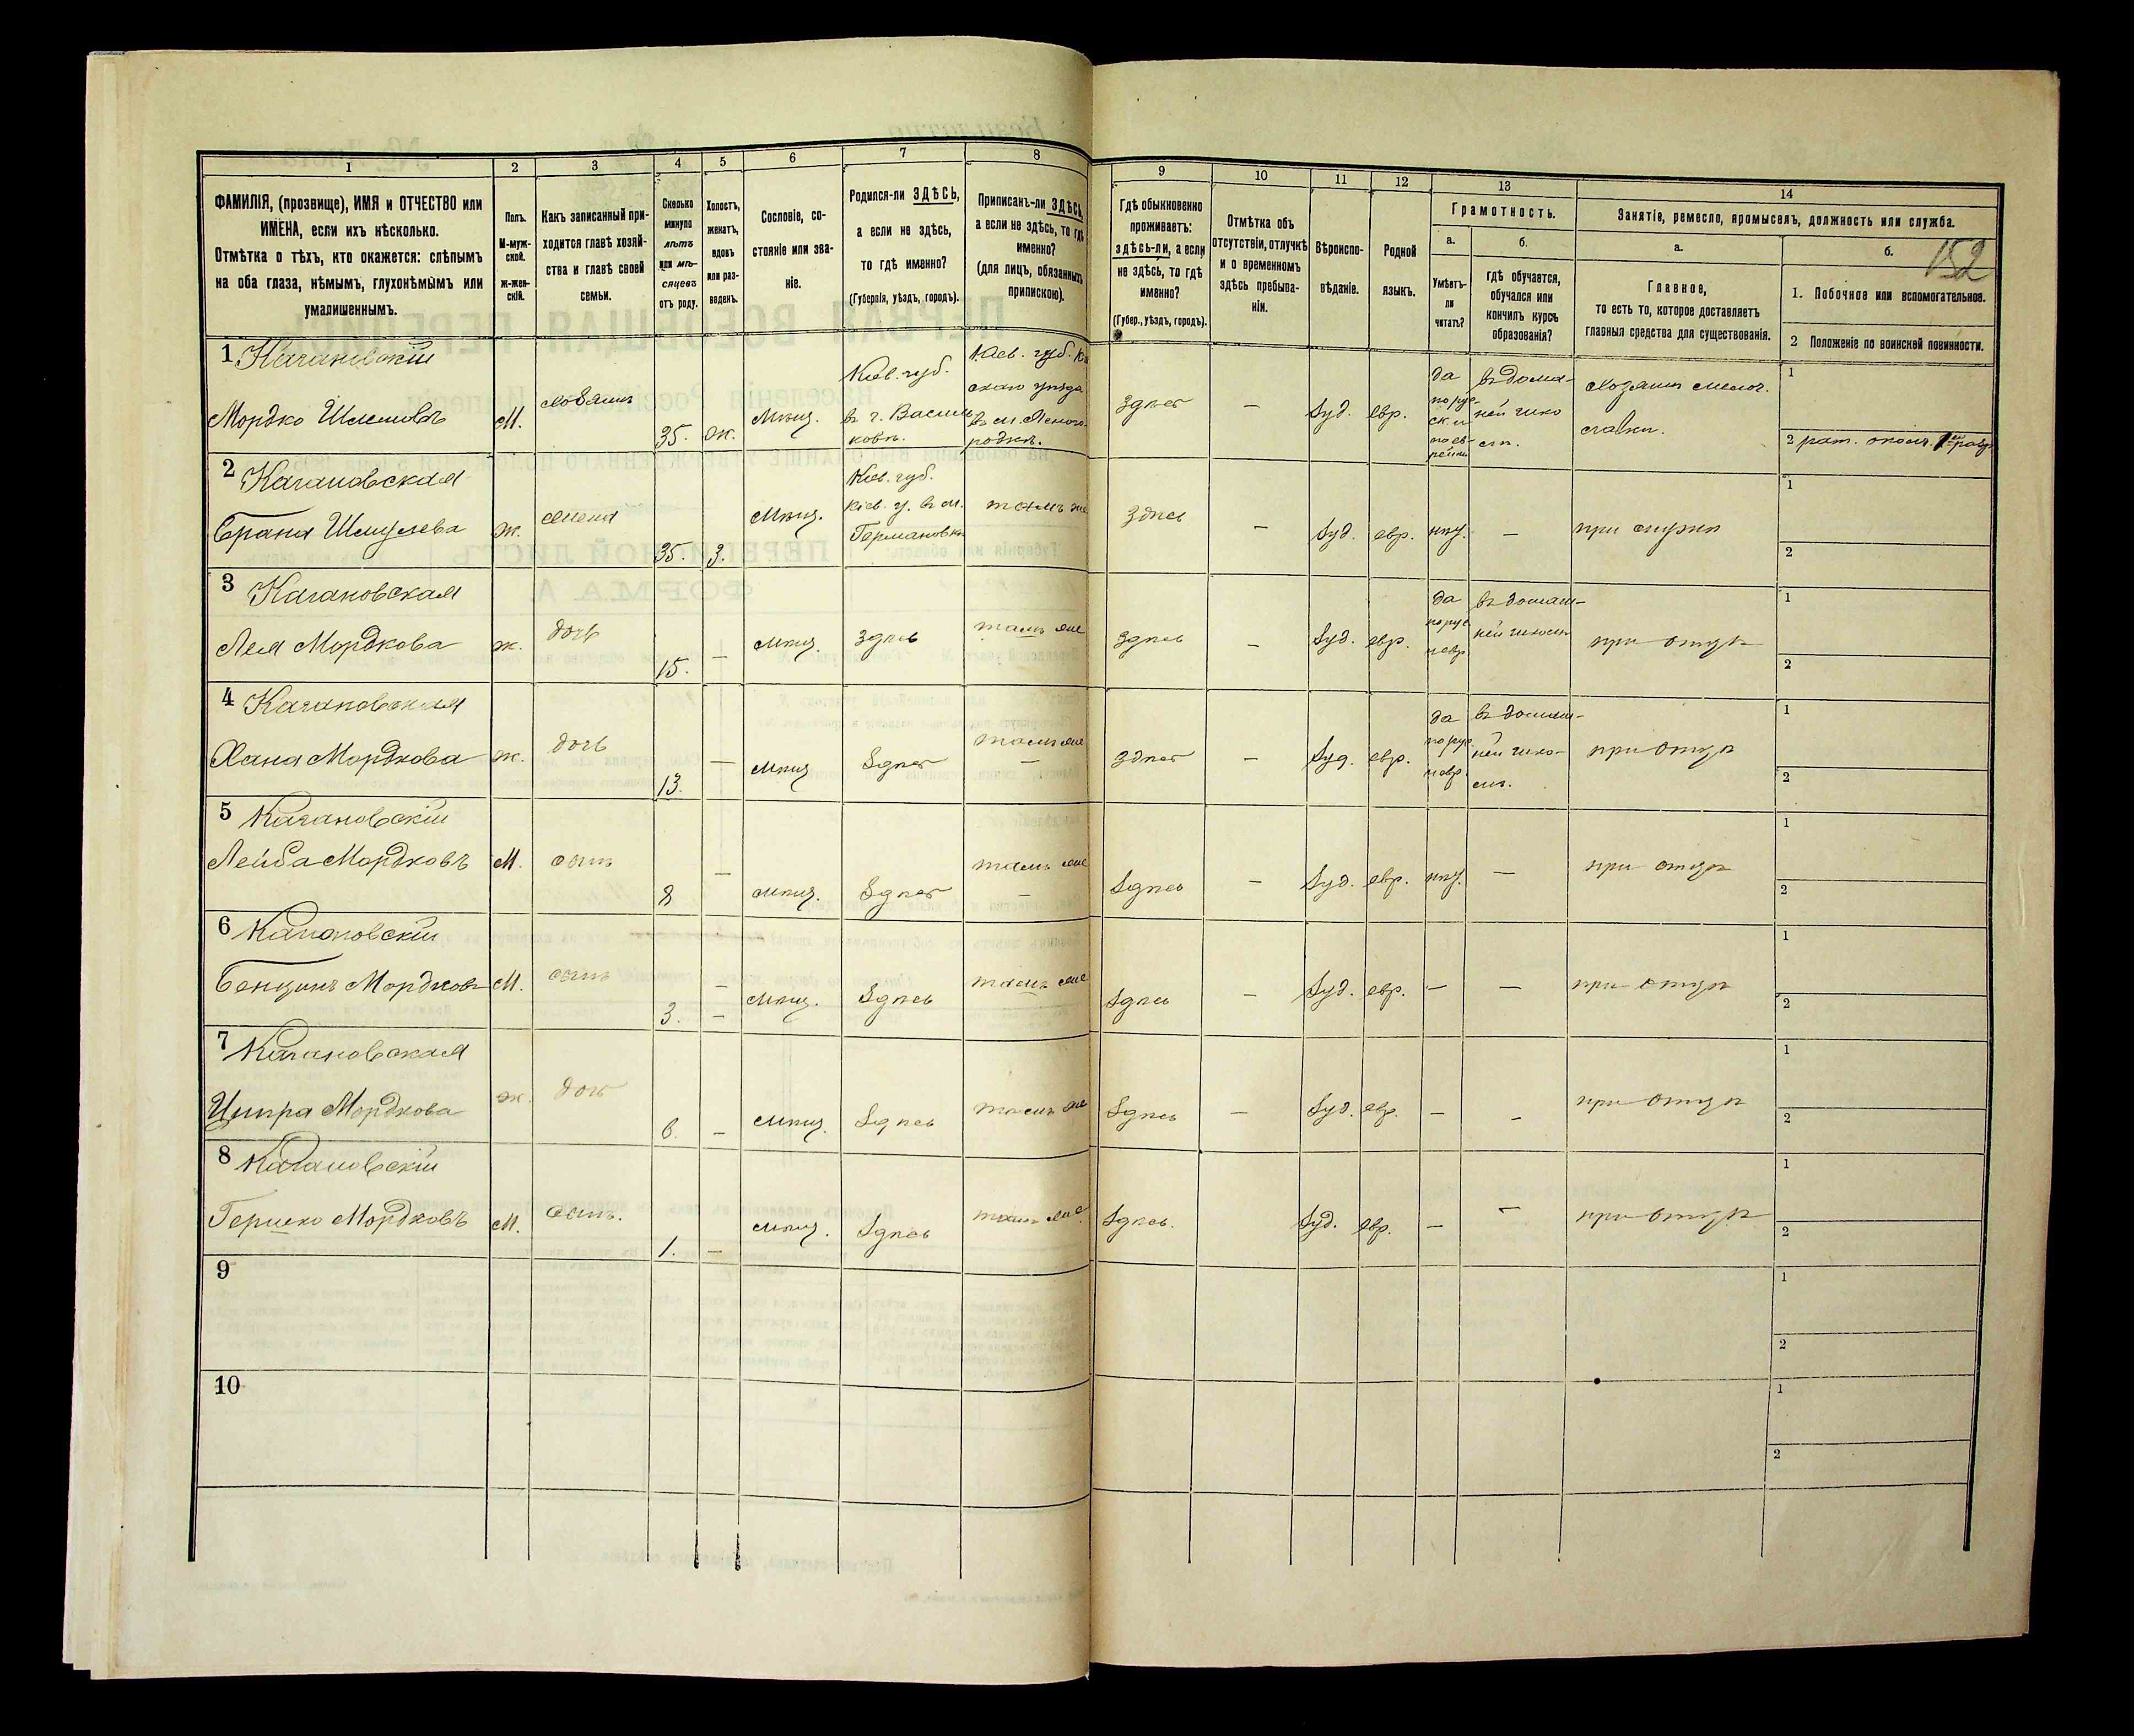 1 2 3 4 5 6 7 8 9 10 11 12 13 14
ФАМИЛІЯ, (прозвище), ИМЯ и ОТЧЕСТВО или
ИМЕНА, если ихъ нѣсколько.
Отмѣтка о тѣхъ, кто окажется: слѣпымъ
на оба глаза, нѣмымъ, глухонѣмымъ или
умалишеннымъ.
Полъ.
М-муж-
ской.
ж-жен-
скій.
Какъ записанный при-
ходится главѣ хозяй-
ства и главѣ своей
семьи.
Сколько
минуло
лѣтъ
или мѣ-
сяцевъ
отъ роду.
Холостъ,
женатъ,
вдовъ
или раз-
веденъ.
Сословіе, со-
стояніе или зва-
ніе.
Родился-ли ЗДѢСЬ,
а если не здѣсь,
то гдѣ именно?
(Губернія, уѣздъ, городъ).
Приписанъ-ли ЗДѢСЬ,
а если не здѣсь, то гдѣ
именно?
(для лицъ, обязанныхъ
припискою).
Гдѣ обыкновенно
проживаетъ:
здѣсь-ли, а если
не здѣсь, то гдѣ
именно?
(Губер., уѣздъ, городъ).
Отмѣтка объ
отсутствіи, отлучкѣ
и о временномъ
здѣсь пребыва-
ніи.
Вѣроиспо-
вѣданіе.
Родной
языкъ.
Грамотность.
а.
Умѣетъ-
ли
читать?
б.
гдѣ обучается,
обучался или
кончилъ курсъ
образованія?
Занятіе, ремесло, промыселъ, должность или служба.
а.
Главное,
то есть то, которое доставляетъ
главныя средства для существованія.
б.
152
1. Побочное или вспомогательное.
2 Положеніе по воинской повинности.
1 Кагановскій
Мордко Шлемовъ
М.
хозяинъ
35.
ж.
мѣщ.
Кіев. губ.
въ г. Василь
ковѣ.
Кіев. губ.
скаго уѣзда
въ м. Ясного
родкѣ.
здѣсь
—
Іуд.
евр.
да
по рус-
ски
по ев-
рейски
въ дома-
ней шко
лѣ.
хозяинъ мелоч.
лавки.
1
2 рат. ополч. 1 разр.
2 Кагановская
Брана Шмулева
ж.
жена
35.
З.
мѣщ.
Кіев. губ.
Кіев. у. въ м.
Германовкѣ
тамъ же
здѣсь
—
Іуд.
евр.
нѣт.
—
при мужѣ
1
2
3 Кагановская
Лея Мордкова
ж.
дочь
15.
—
мѣщ.
здѣсь
тамъ же
здѣсь
—
Іуд.
евр.
да
по рус
и евр
въ домаш-
ней школѣ
при отцѣ
1
2
4 Кагановская
Хана Мордкова
ж.
дочь
13.
—
мѣщ
Здѣсь
тамъ же
—
здѣсь
—
Іуд.
евр.
да
по рус
и евр.
въ домаш-
ней шко-
лѣ.
при отцѣ
1
2
5 Кагановскій
Лейба Мордковъ
М.
сынъ
8
—
мѣщ.
Здѣсь
тамъ же
—
Здѣсь
—
Іуд.
евр.
нѣт.
—
при отцѣ
1
2
6 Кагановскій
Бенціонъ Мордковъ
М.
сынъ
3.
—
—
мѣщ.
Здѣсь
тамъ же
Здѣсь
—
Іуд.
евр.
—
—
при отцѣ
1
2
7 Кагановская
Ципра Мордкова
ж.
дочь
6.
—
мѣщ.
Здѣсь
тамъ же
Здѣсь
—
Іуд.
евр.
—
—
при отцѣ
1
2
8 Кагановскій
Гершко Мордковъ
М.
сынъ.
1.
—
мѣщ.
Здѣсь
тамъ же
Здѣсь.
Іуд.
евр.
—
—
при отцѣ
1
2
9
1
2
10
1
2